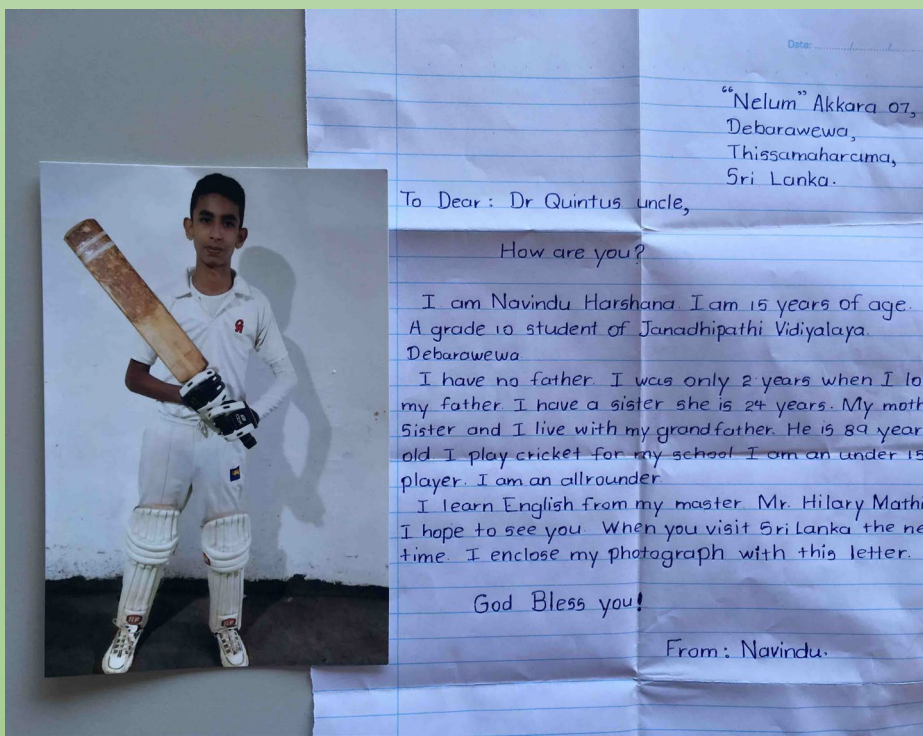 Date: ......./......./.......
“Nelum” Akkara 07,
Debarawewa,
Thissamaharama,
Sri Lanka.
To Dear : Dr Quintus uncle,
How are you?
I am Navindu Harshana. I am 15 years of age.
A grade 10 student of Janadhipathi Vidiyalaya.
Debarawewa
I have no father. I was only 2 years when I lo
my father. I have a sister she is 24 years. My moth
Sister and I live with my grandfather. He is 89 year
old I play cricket for my school I am an under 15
player. I am an allrounder
I learn English from my master. Mr. Hilary Math
I hope to see you. When you visit Sri Lanka the ne
time. I enclose my photograph with this letter.
God Bless you!
From : Navindu.